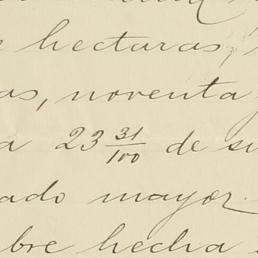 hectaras,
as, noventa
a 23 31/100 de su
ado mayor.
bre hecha